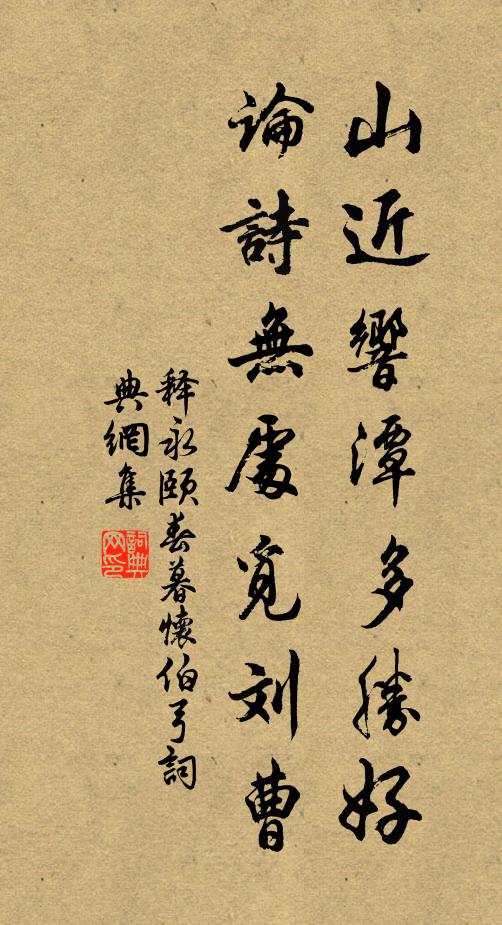 山近響潭多勝好
論詩無處覓刘曹
释永颐春暮懷伯弓詞
典網集
詞典
网印